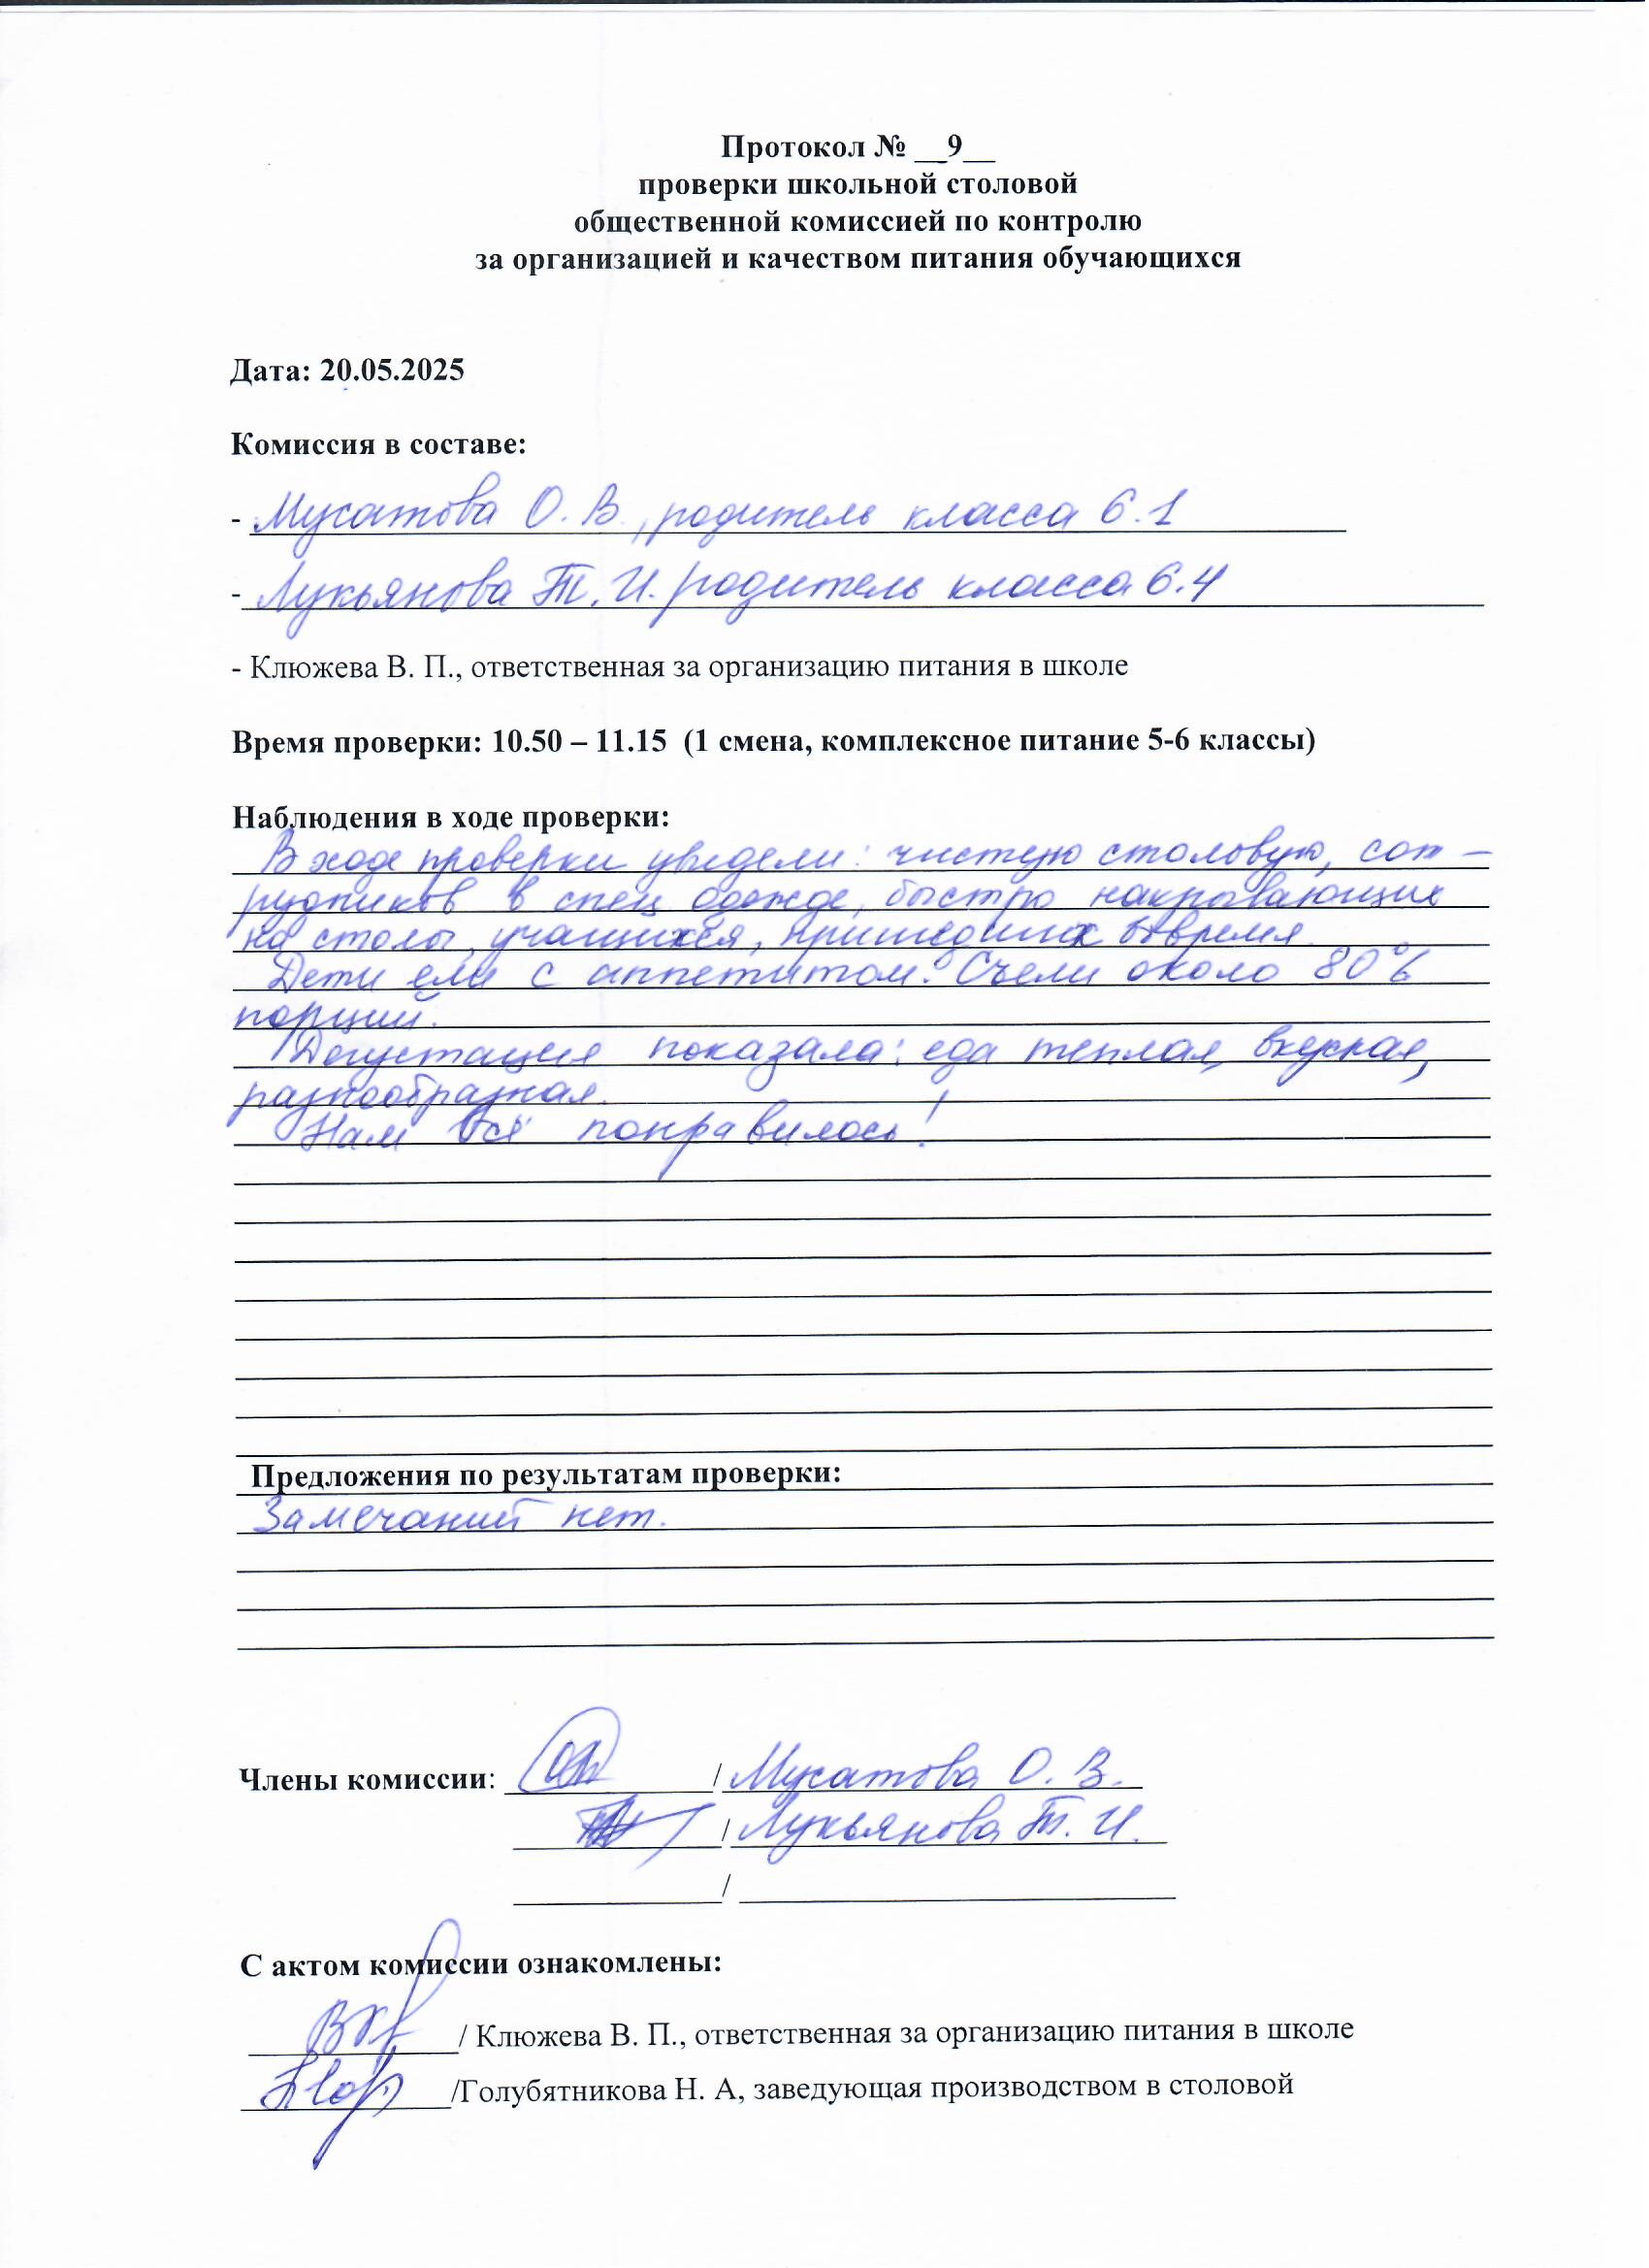 Протокол № __9__
проверки школьной столовой
общественной комиссией по контролю
за организацией и качеством питания обучающихся
Дата: 20.05.2025
Комиссия в составе:
- Мусатова О. В., родитель класса 6.1
- Лукьянова Т. И. родитель класса 6.4
- Клюжева В. П., ответственная за организацию питания в школе
Время проверки: 10.50 – 11.15 (1 смена, комплексное питание 5-6 классы)
Наблюдения в ходе проверки:
В ходе проверки увидели: чистую столовую, сот –
рудников в спец одежде, быстро накрывающих
на столы, учащихся, пришедших вовремя.
Дети ели с аппетитом. Съели около 80%
порций.
Дегустация показала: еда теплая, вкусная,
разнообразная.
Нам всё понравилось!
Предложения по результатам проверки:
Замечаний нет.
Члены комиссии: / Мусатова О. В.
/ Лукьянова Т. И.
/
С актом комиссии ознакомлены:
/ Клюжева В. П., ответственная за организацию питания в школе
/Голубятникова Н. А, заведующая производством в столовой